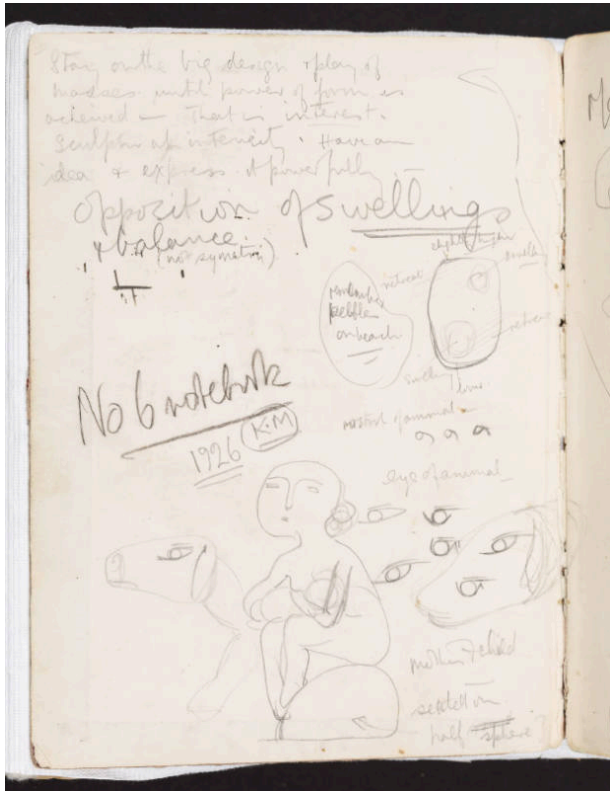 Stay on the big design & play of
masses until power of form is
acheived — That is interest.
Sculptural intencity. Have an
idea & express it powerfully
Opposition of swellings
& balance.
(not symetri)
slightly higher
swelling
retreat
pebble
on beach
retreat
swelling
lower
No 6 notebook
1926 K.M
nostril of animal
eye of animal
mother & child
seated on
half sphere